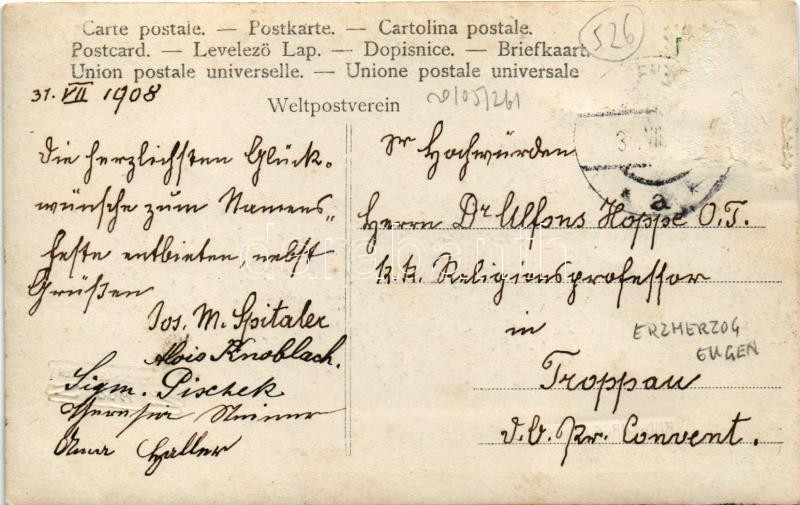 Carte postale. — Postkarte. — Cartolina postale.
Postcard. — Levelező Lap. — Dopisnice. — Briefkaart.
Union postale universelle. — Unione postale universale
Weltpostverein
526
31. VII 1908
Die herzlichsten Glück-
wünsche zum Namens-
feste entbieten, nebst
Grüßen
Jos. M. Spitaler
Alois Knoblach.
Sigm. Pischek
Theresia
Anna Haller
Sr Hochwürden
Herrn Dr Alfons Hoppe O.T.
k.k. Religionsprofessor
in
Troppau
d. O. Pr. Convent.
ERZHERZOG
EUGEN
* a *
darabanth